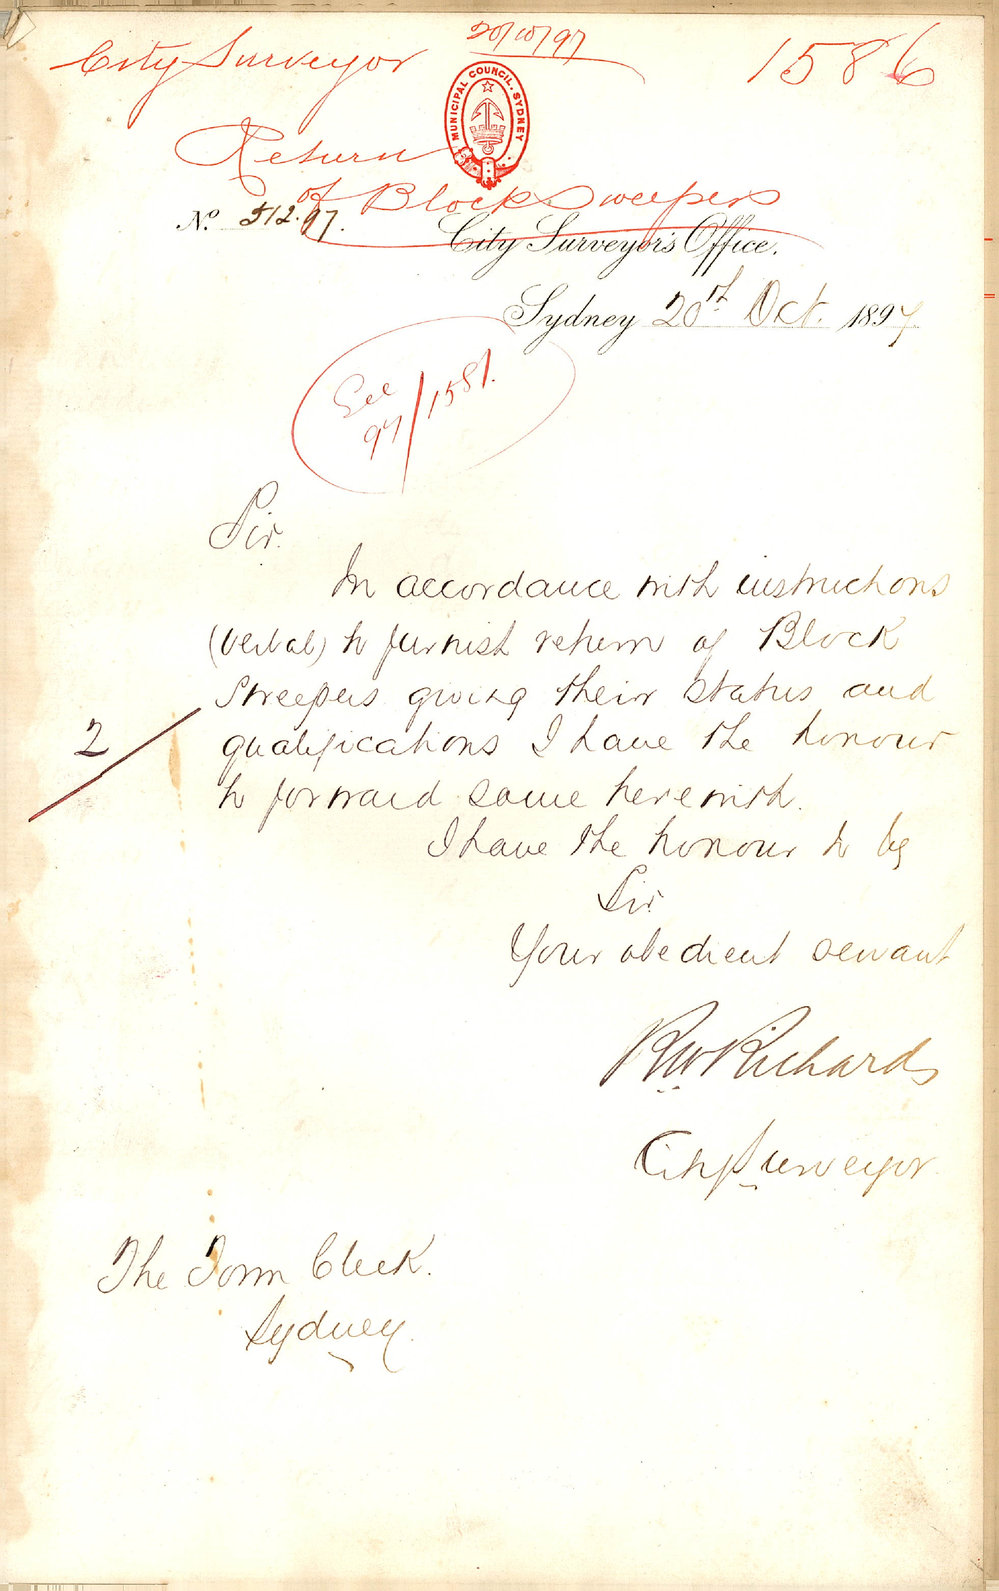 20/10/97
City Surveyor
1586
MUNICIPAL COUNCIL. SYDNEY
Return
of Block Sweepers
No. 512.97.
City Surveyor's Office.
Sydney 20th Oct. 1897
See
97/1581.
Sir.
In accordance with instructions
(verbal) to furnish return of Block
Sweepers giving their status and
2/
qualifications I have the honour
to forward same herewith.
I have the honour to be
Sir.
Your obedient servant
RW Richards
City Surveyor.
The Town Clerk.
Sydney.